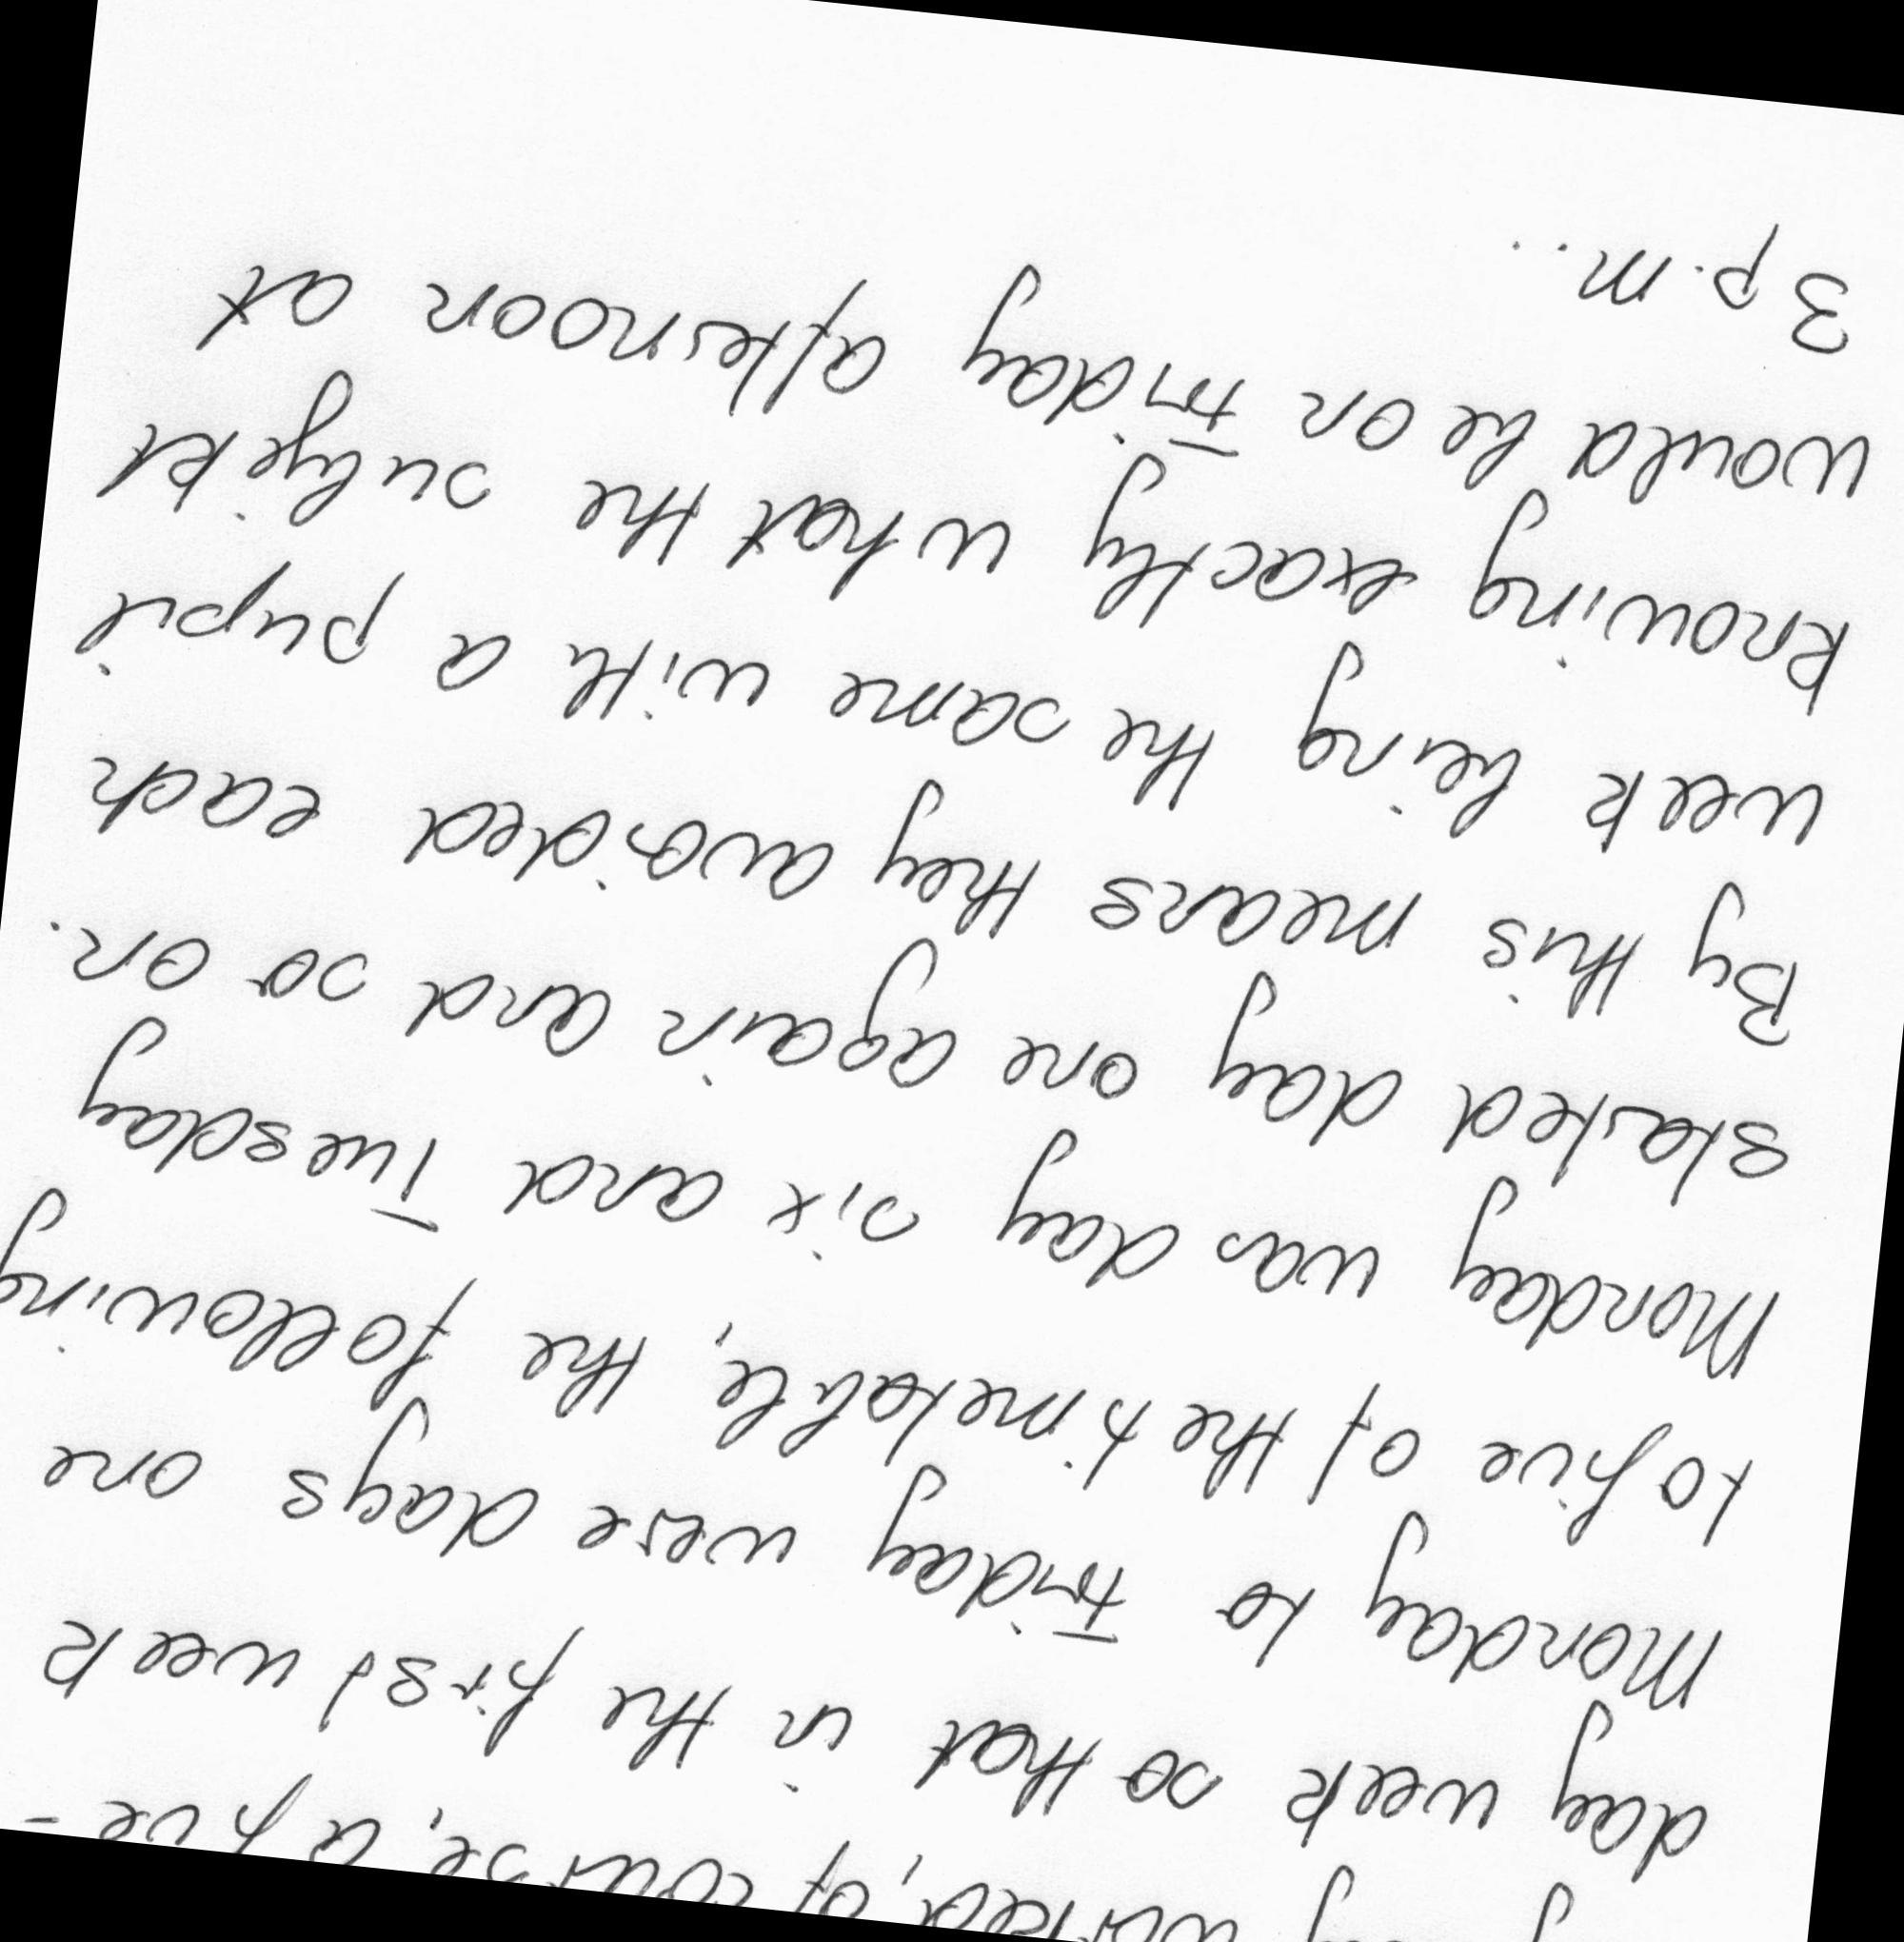 worked, of course, a five-
day week so that in the first week
Monday to Friday were days one
to five of the timetable, the following
Monday was day six and Tuesday
started day one again and so on.
By this means they avoided each
week being the same with a pupil
knowing exactly what the subject
would be on Friday afternoon at
3 p.m...